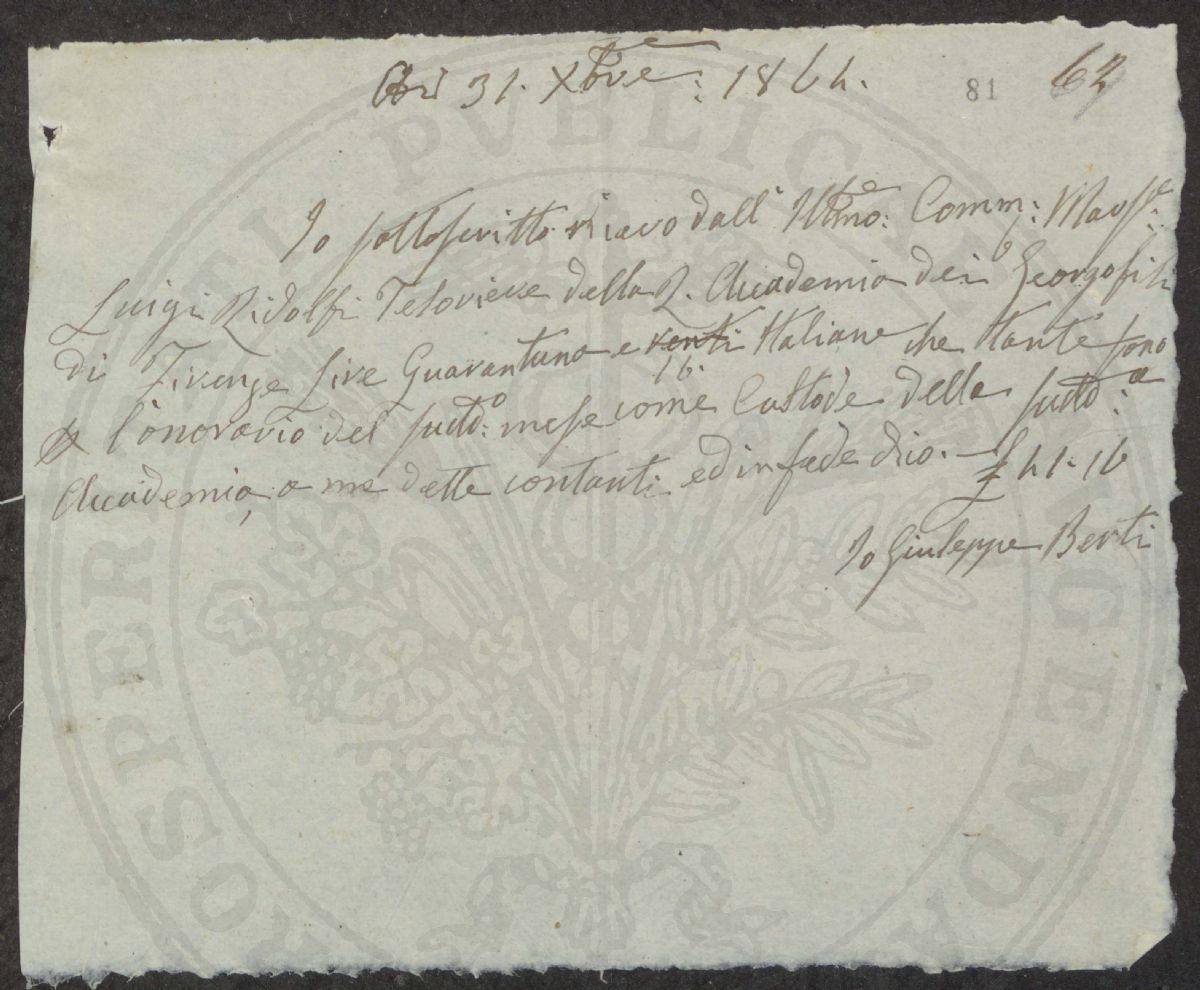 Adì 31. Xbre: 1864.
81 62
Io sottoscritto ricevo dall' Illmo: Comm: March:
Luigi Ridolfi Tesoriere della R. Accademia dei Georgofili
di Firenze Lire Quarantuna e venti Italiane che tante sono
16.
l'onorario del sudd:o mese come Custode della sudd:a
Accademia, a me dette contanti ed in fede dico. £ 41.16
Io Giuseppe Berti
PROSPERITATI PVBLICAE AVGENDAE